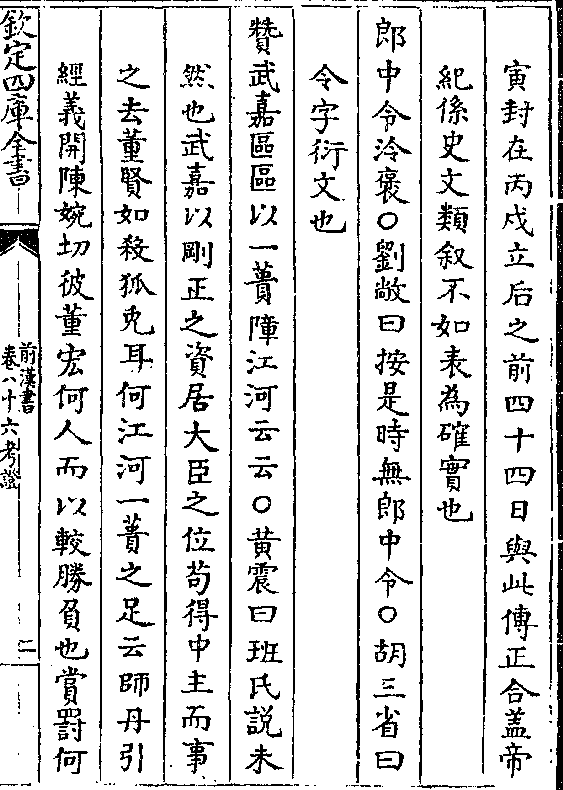 寅封在丙戌立后之前四十四日與此傳正合盖帝
紀係史文類叙不如表為確實也
郎中令泠褒○劉敞曰按是時無郎中令○胡三省曰
令字衍文也
贊武嘉區區以一蕢障江河云云○黄震曰班氏説未
然也武嘉以剛正之資居大臣之位苟得中主而事
之去董賢如殺狐兎耳何江河一蕢之足云師丹引
經義開陳婉切彼董宏何人而以較勝負也賞罰何
欽定四庫全書
前漢書
卷八十六考證
二